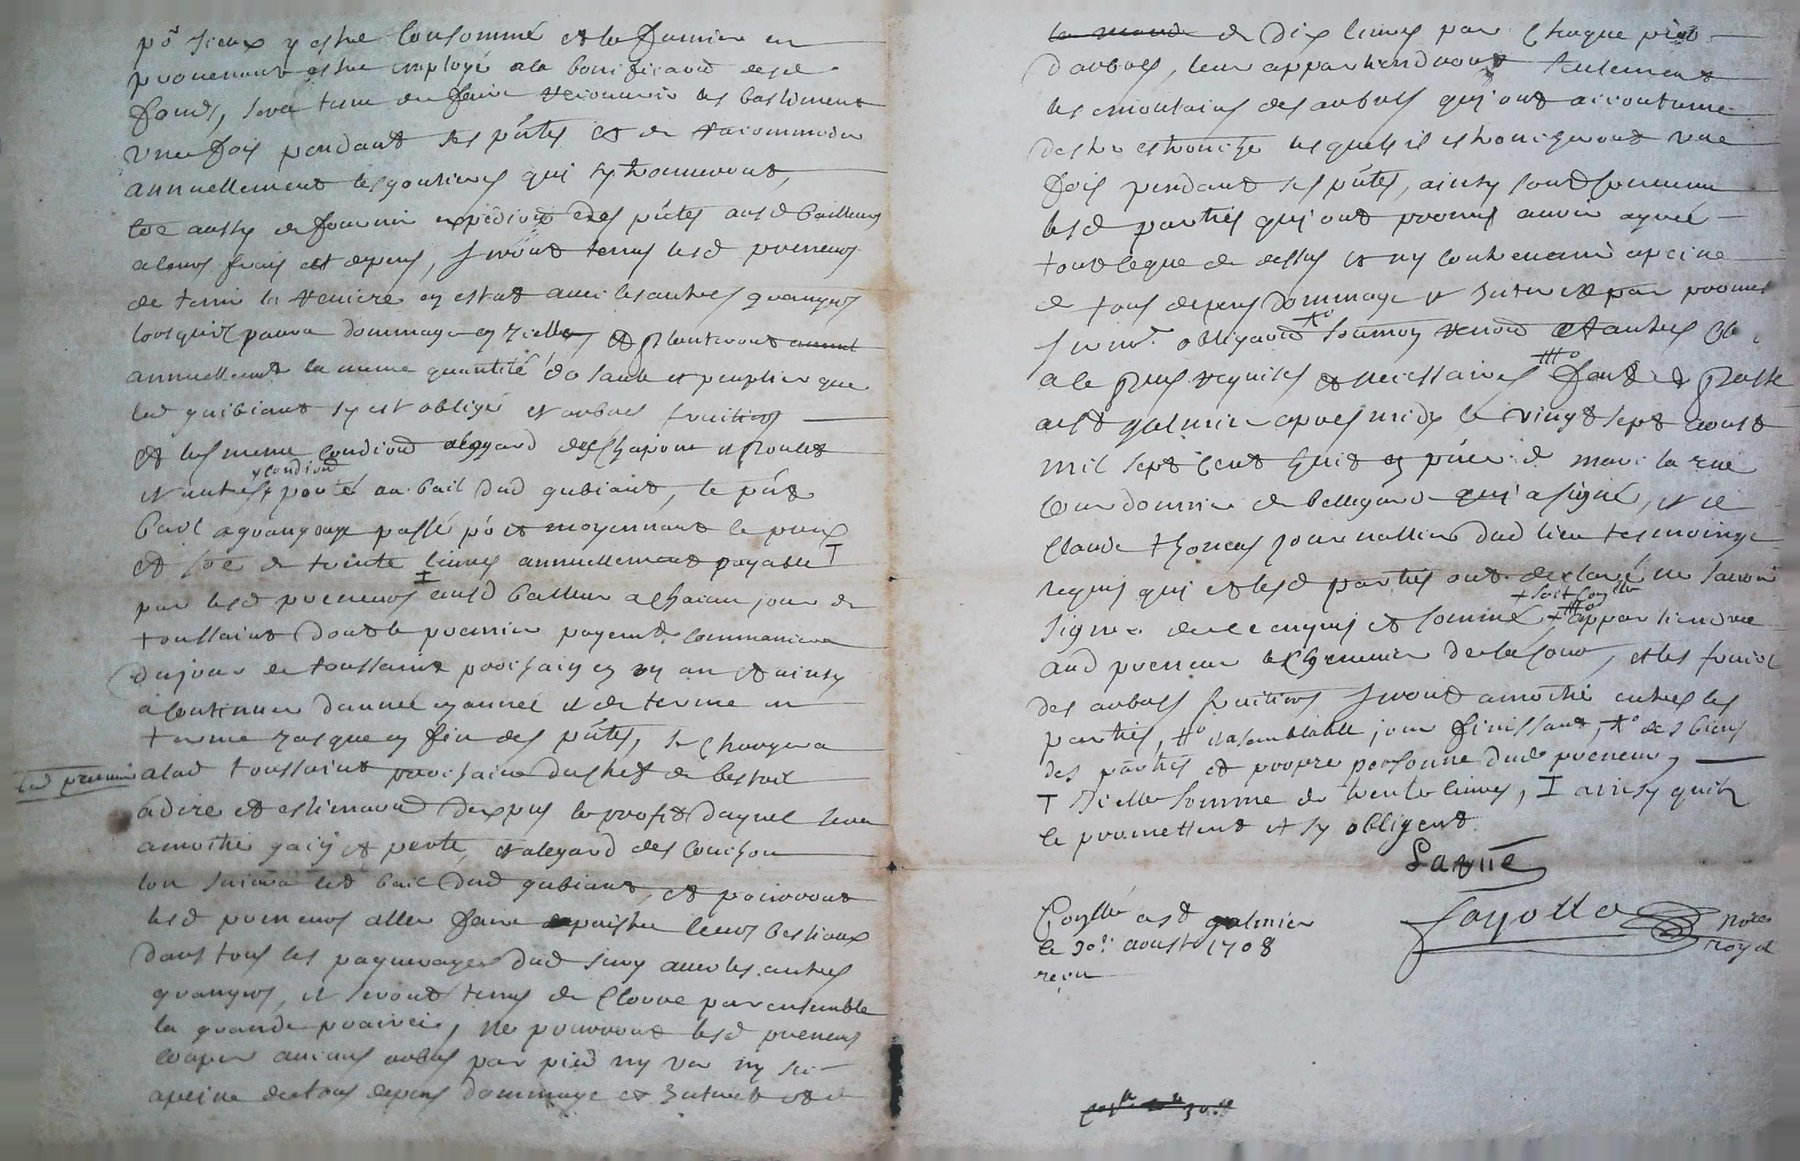 po.r iceux y estre consommé et le fumier en
provenant estre employé a la bonificaõn desd.
fonds, sera tenu de faire recouvrir les bastiments
une fois pendant les pñtes et de racommoder
annuellement les goutieres qui sy trouveront,
aussy de fournir expediõn des pñtes ausd bailleurs
a leurs frais et depens, seront tenus lesd preneurs
de tenir la riviere en estat avec les autres grangers
lorsquil paura dommage en icelle, et planteront
annuellemt la mesme quantité de saule et peuplier que
led gubiant sy est obligé et arbres fruitiers
et les mesme condiõns alegard des chapons et poulets
et autres + condiõns portés au bail dud gubiant, le pñt
bail a grangeage passé po.r et moyennant le prix
et sõe de trente livres annuellement payable T
par lesd preneurs I ausd bailleur a chacun jour de
toussaint dont le premier payemt. commancera
du jour de toussaint prochain en un an et ainsy
a continuer dannée en année et de terme en
terme jusque en fin des pñtes, se chargera
led preneur a lad toussaint prochaine du chef de bestail
a dire et estimaõn dexpers le profit duquel sera
a moitié gain et perte, et alegard des
lon suivra led bail dud gubiant, et pourront
lesd preneurs aller faire paistre leurs bestiaux
dans tous les paquerages dud avec les autres
grangers, et seront tenus de clorre par ensemble
la grande prairie, ne pourront lesd preneurs
couper aucuns arbres par pied ny ver ny sec
a peine de tous depens dommage et interets et de
de dix livres par chaque pied
darbres, leur appartiendront seulement
les emontaies des arbres qui ont accoutumé
destre estronché lesquels il estroncheront une
fois pendant les pñtes, ainsy sont convenu
lesd parties qui ont promis avoir agreé
tout ce que de dessus et ny contrevenir a peine
de tous depens dommage et interest par promes
serm.t obligaõn X.o soumon renõn et autres cl.
a le plus requises et necessaires ##.o fait et passé
a st galmier apres midy le vingt sept aoust
mil sept cent huit en pñce de marc la rue
cordonnier de bellegarde qui a signé, et de
claude thoneus journallier dud lieu tesmoings
requis qui et lesd parties ont declaré ne savoir
signer de ce enquis et sommé + soit conllé ##.o appartiendra
aud preneur de la cour, et les fruict
des arbres fruitiers seront a moitié entre les
parties, ##.o et a semblable jour finissant, X.o des biens
des parties et propre personne dud preneur,
T dicelle somme de trente livres, I ainsy quilz
le promettent et sy obligent
Larue
Fayolle no.re royal
Conllé a st galmier
le 30.e aoust 1708
reçu